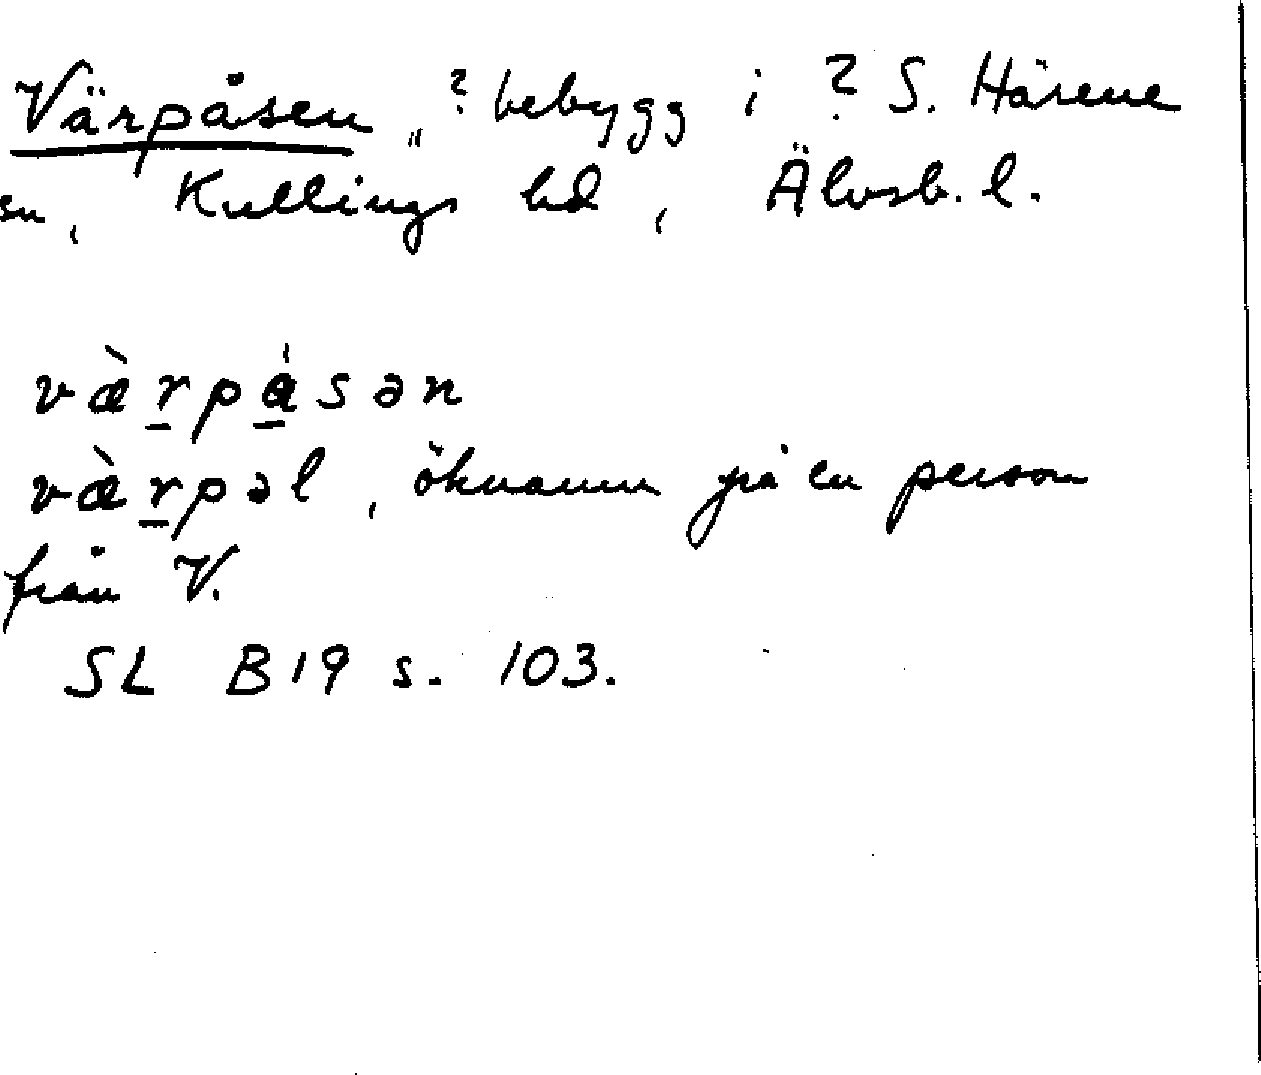 Värpåsen „ ? bebygg i ? S. Härene
sn, Kullings hd, Älvsb. l.
væ̀r̲pá̲sən
væ̀r̲pəl, öknamn på en person
från V.
SL B19 s. 103.